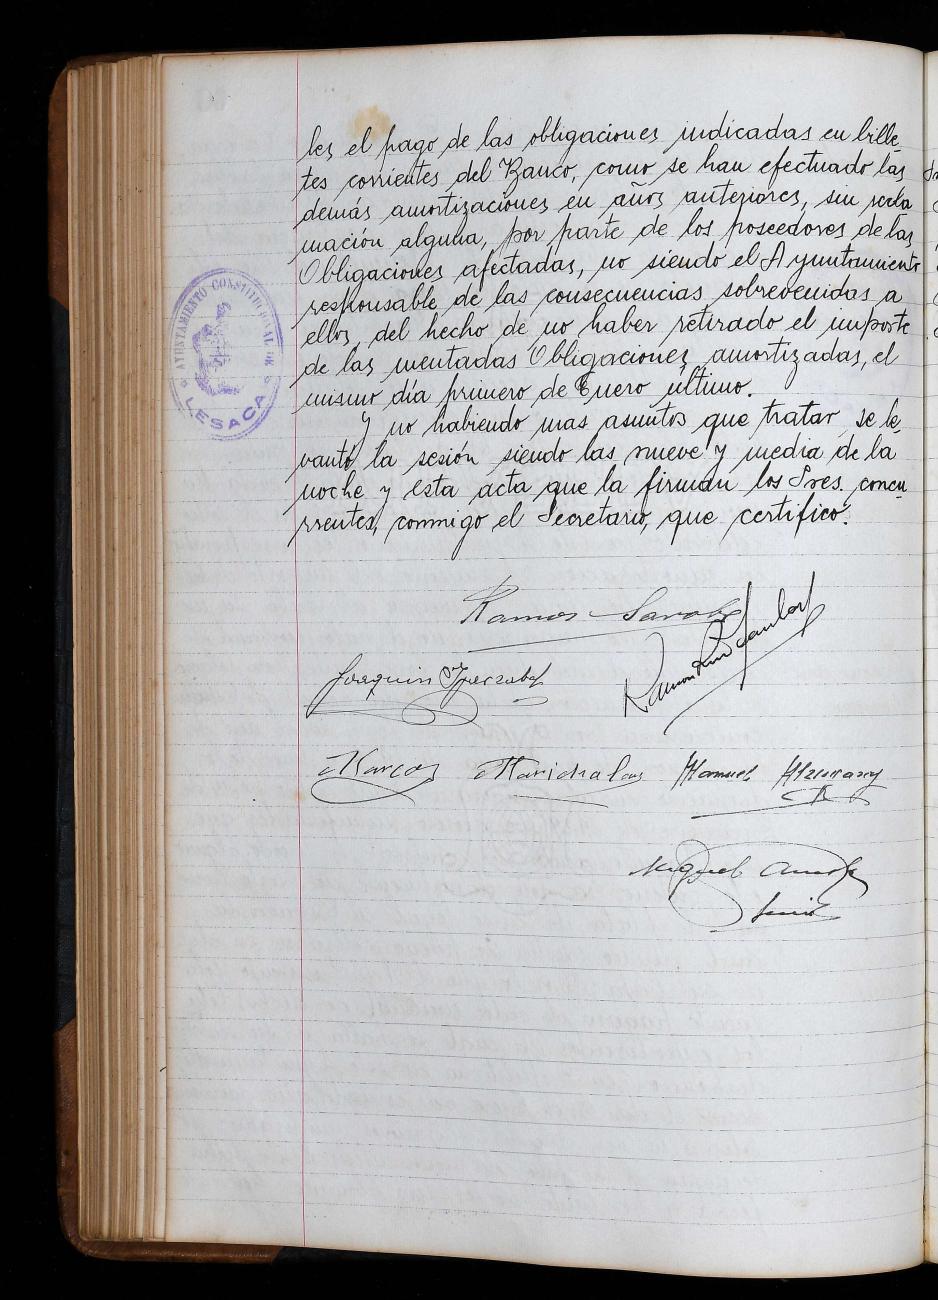 les el pago de las obligaciones indicadas en bille-
tes corrientes del Banco, como se han efectuado las
demás amortizaciones en años anteriores, sin recla
mación alguna, por parte de los poseedores de las
Obligaciones afectadas, no siendo el Ayuntamiento
responsable de las consecuencias sobrevenidas a
ellos, del hecho de no haber retirado el importe
de las mentadas Obligaciones amortizadas, el
mismo día primero de Enero último.
Y no habiendo mas asuntos que tratar, se le-
vantó la sesión siendo las nueve y media de la
noche y esta acta que la firman los Sres. concu
rrentes, conmigo el Secretario, que certifico.
AYUNTAMIENTO CONSTITUCIONAL DE
LESACA
Ramon
Joaquin
Ramon
Marcos Marichalar Manuel
Miguel